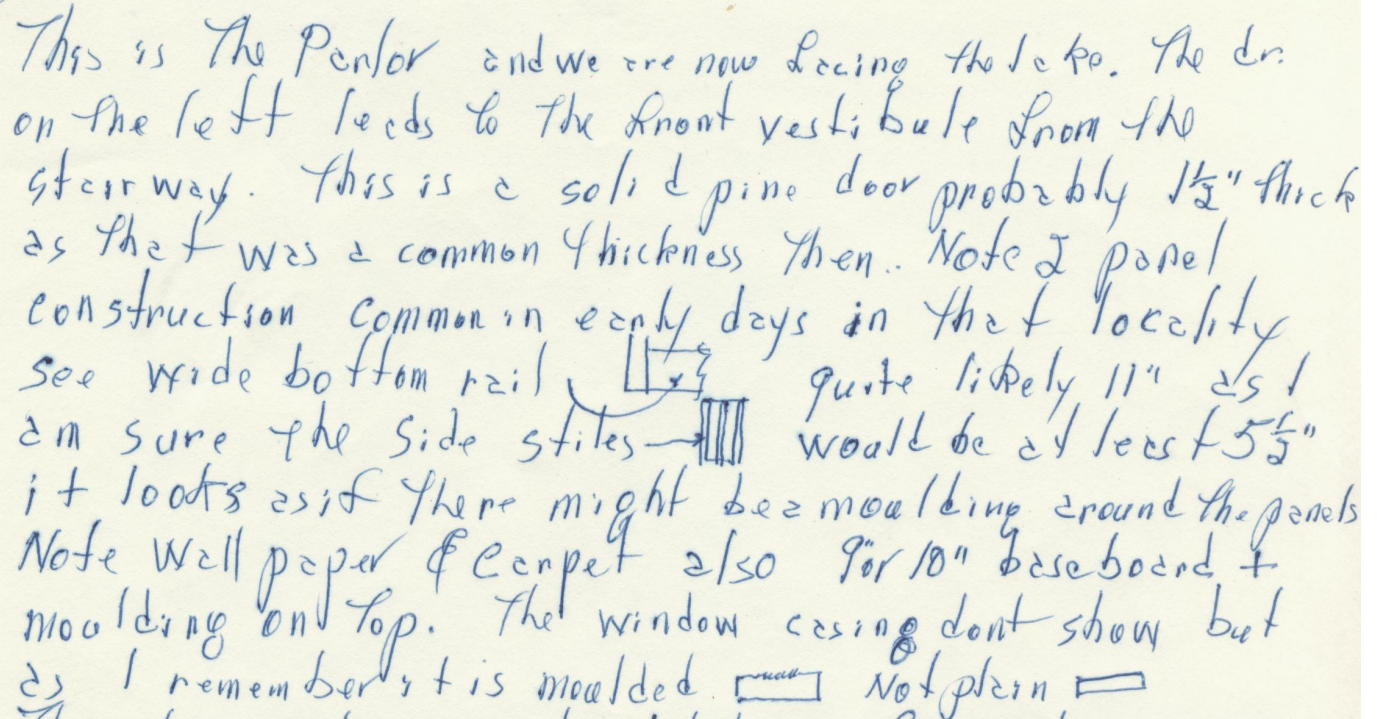 This is the Parlor and we are now facing the lake. The dr.
on the left leads to the front vestibule from the
stairway. This is a solid pine door probably 1½" thick
as that was a common thickness then. Note 2 panel
construction common in early days in that locality
see wide bottom rail quite likely 11" as I
am sure the side stiles would be at least 5½"
it looks as if there might be a moulding around the panels
Note Wall paper & Carpet also 9" or 10" baseboard +
moulding on top. The window casing dont show but
as I remember it is moulded Not plain